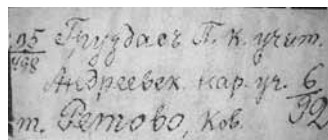 95/498 Груздасъ П. К. учит.
Андреевск. нар. уч. 6/92
т. Ретово, Ков.